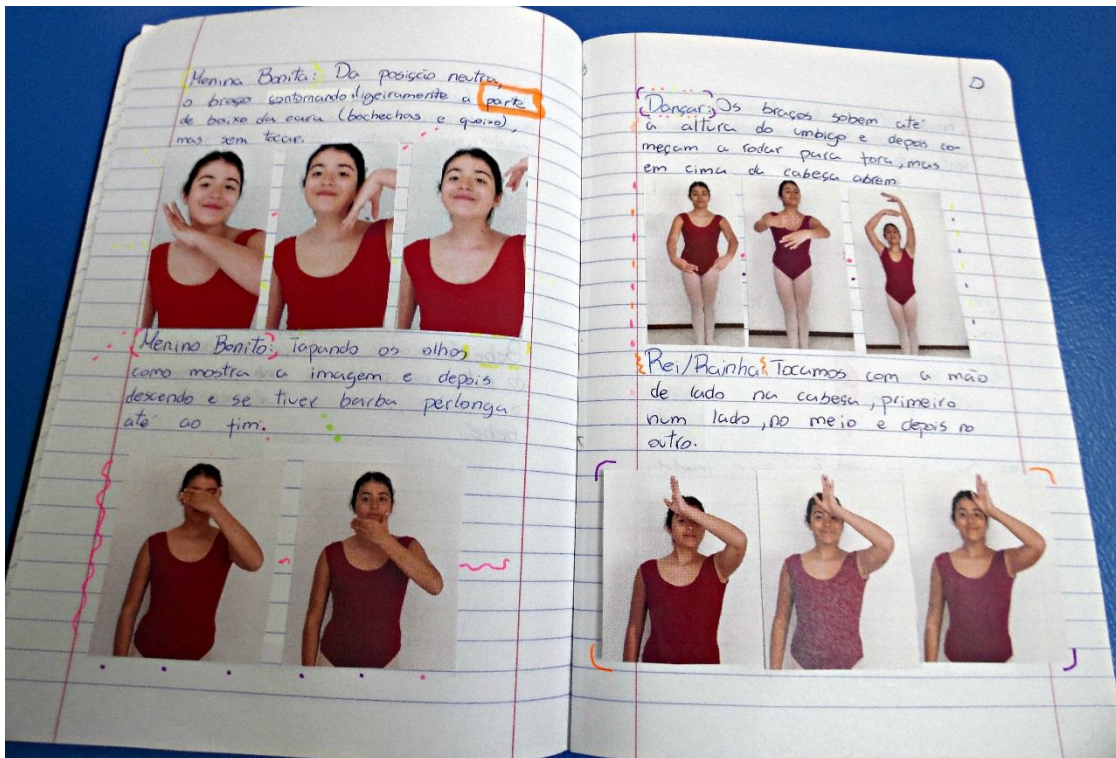 Menina Bonita: Da posição neutra,
o braço contornando ligeiramente a parte
de baixo da cara (bochechas e queixo),
mas sem tocar.
Menino Bonito: Tapando os olhos
como mostra a imagem e depois
descendo e se tiver barba perlonga
até ao fim.
D
Dançar: Os braços sobem até
à altura do umbigo e depois co-
meçam a rodar para fora, mas
em cima da cabeça abrem
Rei/Rainha: Tocamos com a mão
de lado na cabeça, primeiro
num lado, no meio e depois no
outro.